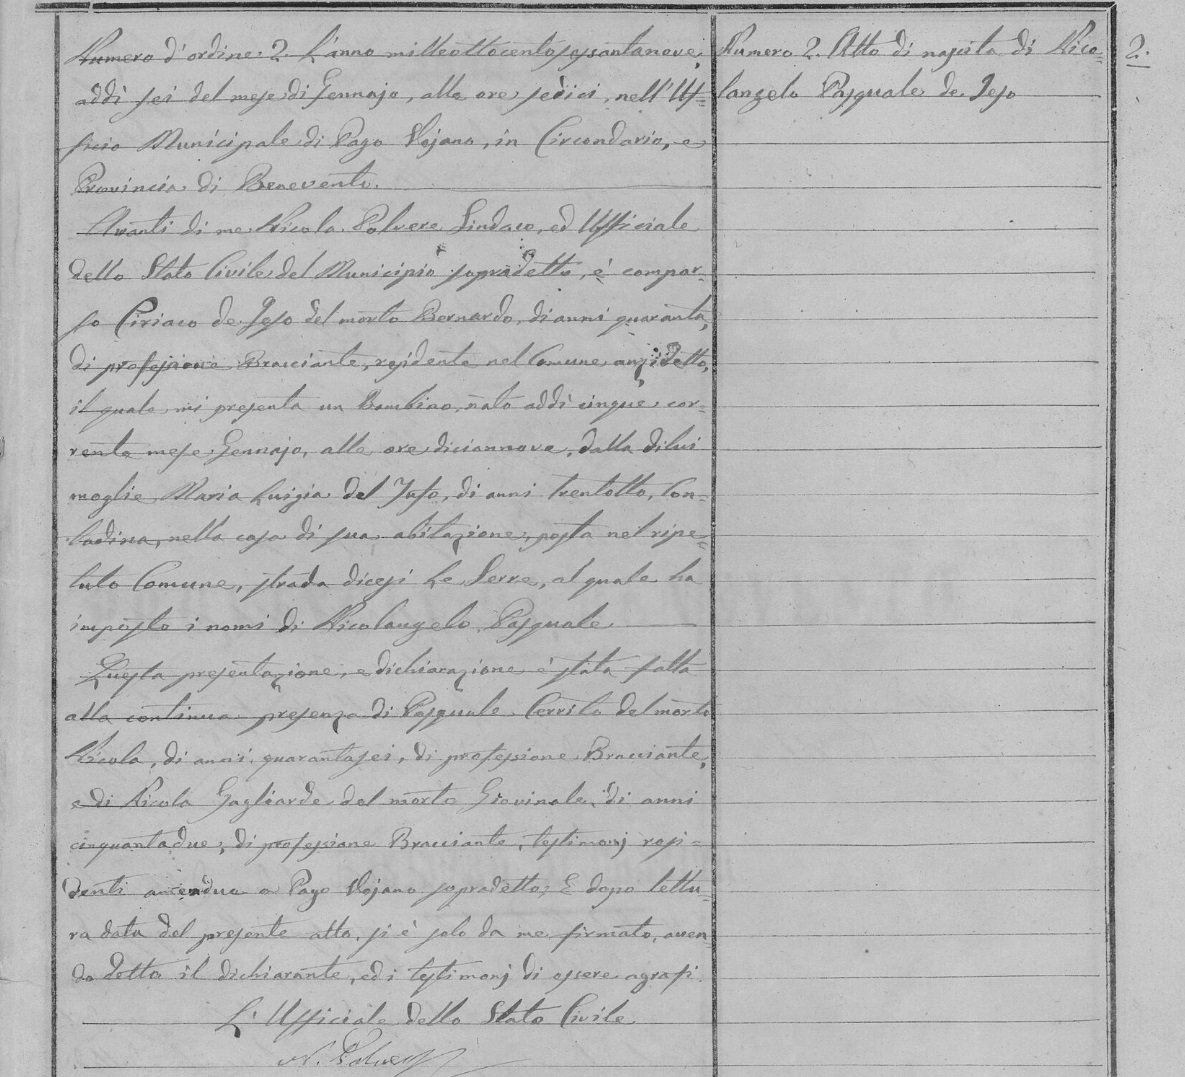 Numero d'ordine 2. L'anno milleottocentosessantanove,
addì sei del mese di Gennajo, alle ore sedici, nell'Uf=
ficio Municipale di Pago Vejano, in Circondario, e
Provincia di Benevento.
Avanti di me Nicola Polvere Sindaco, ed Ufficiale
dello Stato Civile del Municipio sopradetto, è compar-
so Ciriaco de Ieso del morto Bernardo, di anni quaranta,
di professione Bracciante, residente nel Comune anzidetto,
il quale mi presenta un Bambino, nato addì cinque cor-
rente mese Gennajo, alle ore diciannove, dalla dilui
moglie Maria Luigia del Iufo, di anni trentotto, Con-
tadina, nella casa di sua abitazione, posta nel ripe-
tuto Comune, strada dicesi Le Serre, al quale ha
imposto i nomi di Nicolangelo Pasquale
Questa presentazione, e dichiarazione è stata fatta
alla continua presenza di Pasquale Cerrito del morto
Nicola, di anni quarantasei, di professione Bracciante,
e di Nicola Gagliarde del morto Giovinale, di anni
cinquantadue, di professione Bracciante, testimonj resi-
denti amendue a Pago Vejano sopradetto; E dopo lettu=
ra data del presente atto, si è solo da me firmato, aven
do detto il dichiarante, ed i testimonj di essere agrafi.
L'Ufficiale dello Stato Civile
N. Polvere
Numero 2. Atto di nascita di Nico-
langelo Pasquale de Ieso
2.